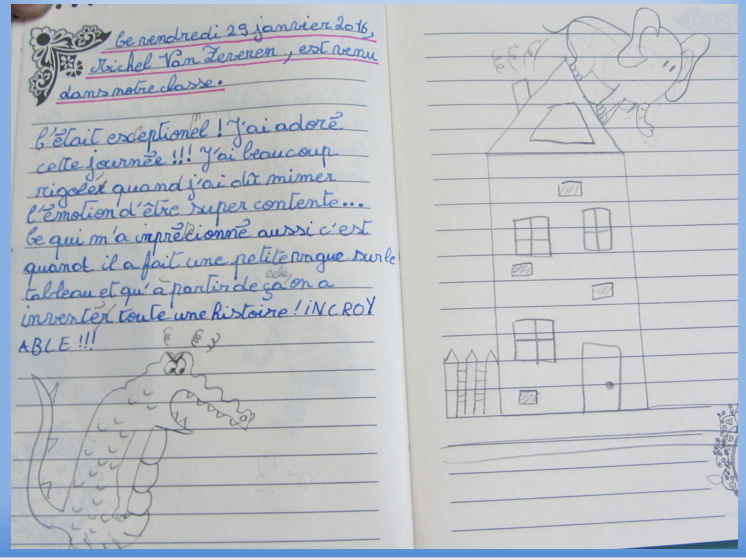 Le vendredi 29 janvier 2016,
Michel Van Zeveren, est venu
dans notre classe.
C'était exceptionel ! J'ai adoré
cette journée !!! J'ai beaucoup
rigoler quand j'ai dû mimer
l'émotion d'être super contente...
Ce qui m'a inprécionné aussi c'est
quand il a fait une petite vague sur le
tableau et qu'à partir de ça on a
inventer toute une histoire ! iNCROY
ABLE !!!